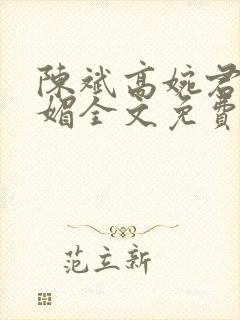 陳斌高婉君
媚全文免費
范立新